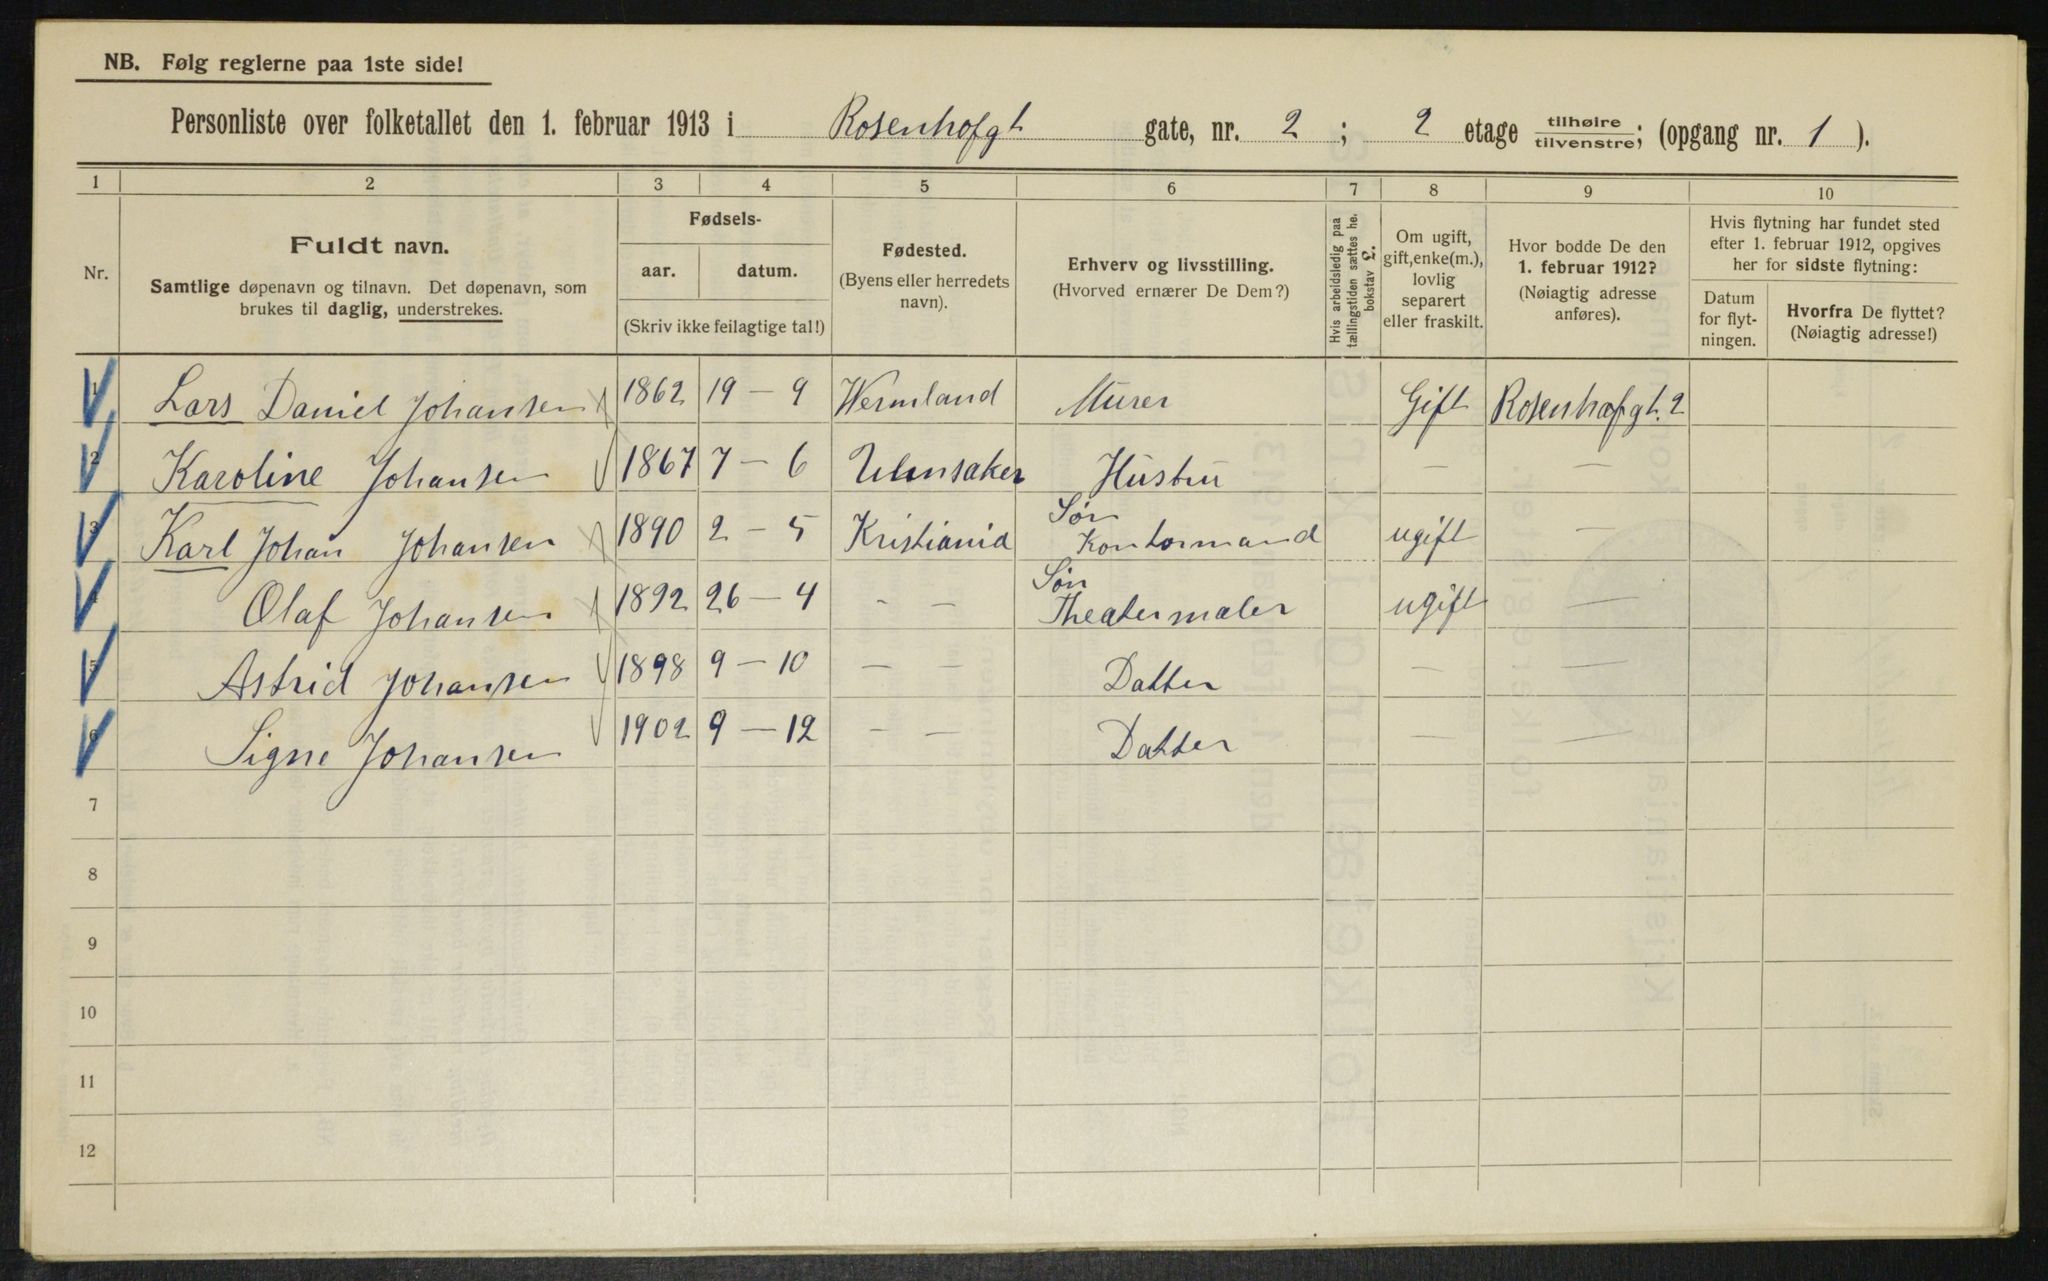 NB. Følg reglerne paa 1ste side!
Personliste over folketallet den 1. februar 1913 i Rosenhofgt gate, nr. 2 ; 2 etage tilhøire/tilvenstre; (opgang nr. 1 ).
1 2 3 4 5 6 7 8 9 10
Nr.
Fuldt navn.
Samtlige døpenavn og tilnavn. Det døpenavn, som
brukes til daglig, understrekes.
Fødsels-
aar. datum.
(Skriv ikke feilagtige tal!)
Fødested.
(Byens eller herredets
navn).
Erhverv og livsstilling.
(Hvorved ernærer De Dem?)
Hvis arbeidsledig paa
tællingstiden sættes her
bokstav L.
Om ugift,
gift, enke(m.),
lovlig
separert
eller fraskilt.
Hvor bodde De den
1. februar 1912?
(Nøiagtig adresse
anføres).
Hvis flytning har fundet sted
efter 1. februar 1912, opgives
her for sidste flytning:
Datum
for flyt-
ningen.
Hvorfra De flyttet?
(Nøiagtig adresse!)
1 Lars Daniel Johansen 1862 19 - 9 Wermland Murer Gift Rosenhofgt. 2
2 Karoline Johansen 1867 7 - 6 Ullensaker Hustru — —
3 Karl Johan Johansen 1890 2 - 5 Kristiania Søn
Kontormand ugift —
4 Olaf Johansen 1892 26 - 4 - - Søn
Theatermaler ugift —
5 Astrid Johansen 1898 9 - 10 - - Datter — —
6 Signe Johansen 1902 9 - 12 - - Datter — —
7
8
9
10
11
12